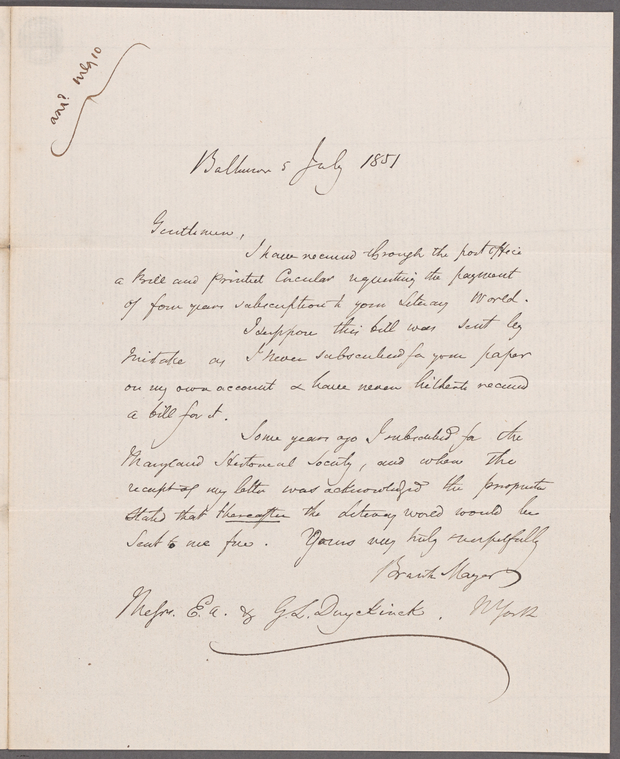 ansd July 10
Baltimore 5 July 1851
Gentlemen,
I have received through the post office
a Bill and printed Circular requesting the payment
of four years subscription to your Literary World.
I suppose this bill was sent by
mistake as I never subscribed for your paper
on my own account & have never hitherto received
a bill for it.
Some years ago I subscribed for the
Maryland Historical Society, and when the
receipt of my letter was acknowledged the proprietor
stated that thereafter the Literary World would be
sent to me free. Yours very truly & respectfully
Brantz Mayer
Messrs. E. A. & G L. Duyckinck. N York